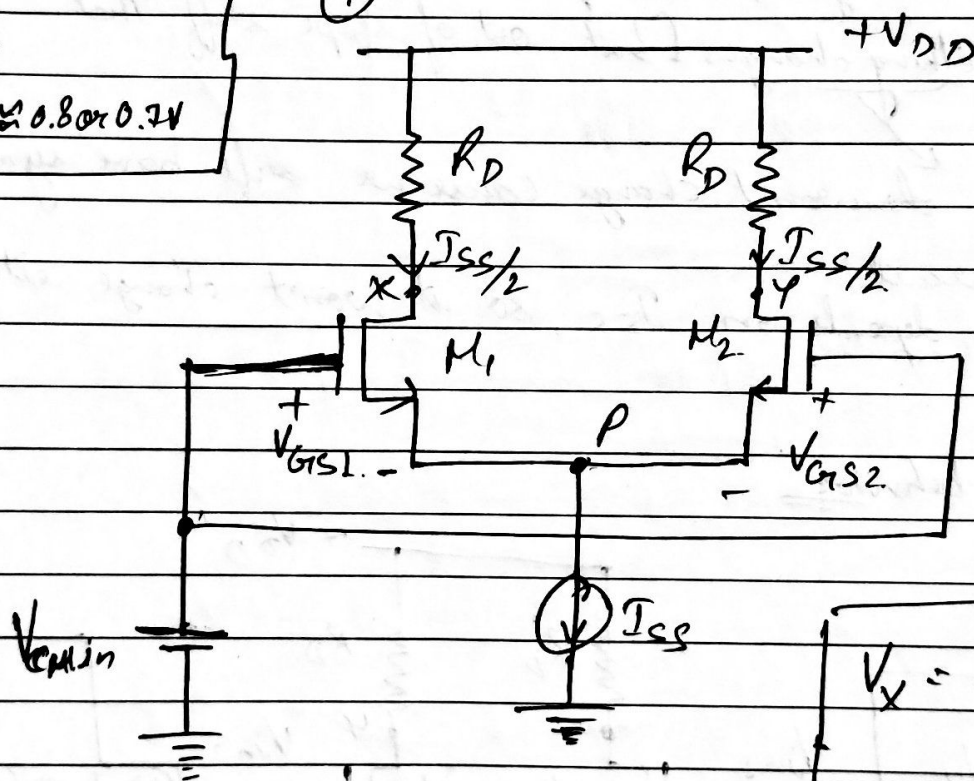 ①
+V_DD
≈ 0.8 or 0.7V
R_D R_D
I_SS/2 I_SS/2
X Y
M_1 M_2
+ +
V_GS1 - P V_GS2
-
V_CMin I_SS
V_X =